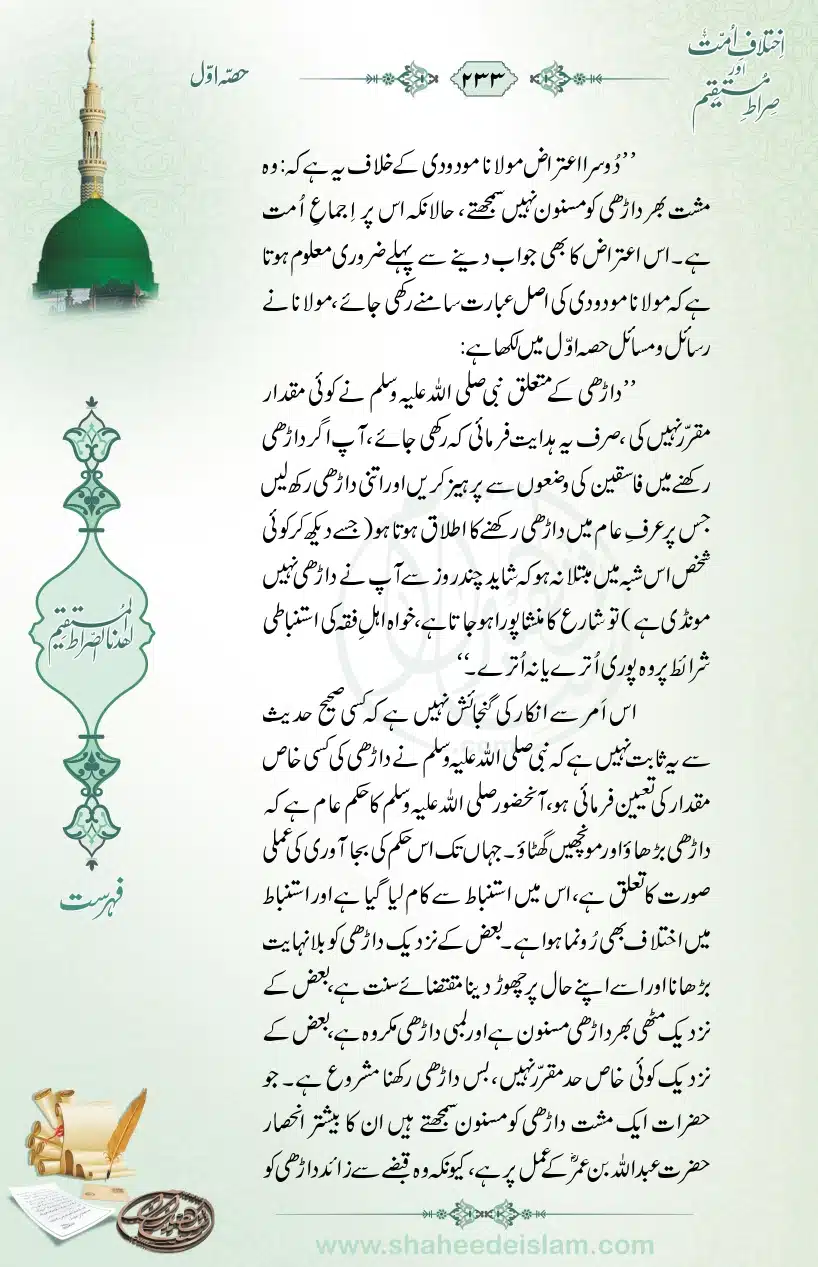 اِختلافِ اُمّت
اور
صِراطِ مُستقیم
۲۳۳
حصّہ اوّل
’’دُوسرا اعتراض مولانا مودودی کے خلاف یہ ہے کہ: وہ
مشت بھر داڑھی کو مسنون نہیں سمجھتے، حالانکہ اس پر اِجماعِ اُمت
ہے۔ اس اعتراض کا بھی جواب دینے سے پہلے ضروری معلوم ہوتا
ہے کہ مولانا مودودی کی اصل عبارت سامنے رکھی جائے، مولانا نے
رسائل و مسائل حصہ اوّل میں لکھا ہے:
’’داڑھی کے متعلق نبی صلی اللہ علیہ وسلم نے کوئی مقدار
مقرّر نہیں کی، صرف یہ ہدایت فرمائی کہ رکھی جائے، آپ اگر داڑھی
رکھنے میں فاسقین کی وضعوں سے پرہیز کریں اور اتنی داڑھی رکھ لیں
جس پر عرفِ عام میں داڑھی رکھنے کا اطلاق ہوتا ہو (جسے دیکھ کر کوئی
شخص اس شبہ میں مبتلا نہ ہو کہ شاید چند روز سے آپ نے داڑھی نہیں
مونڈی ہے) تو شارع کا منشا پورا ہوجاتا ہے، خواہ اہلِ فقہ کی استنباطی
شرائط پر وہ پوری اُترے یا نہ اُترے۔‘‘
اس اَمر سے انکار کی گنجائش نہیں ہے کہ کسی صحیح حدیث
سے یہ ثابت نہیں ہے کہ نبی صلی اللہ علیہ وسلم نے داڑھی کی کسی خاص
مقدار کی تعیین فرمائی ہو، آنحضور صلی اللہ علیہ وسلم کا حکم عام ہے کہ
داڑھی بڑھاؤ اور مونچھیں گھٹاؤ۔ جہاں تک اس حکم کی بجا آوری کی عملی
صورت کا تعلق ہے، اس میں استنباط سے کام لیا گیا ہے اور استنباط
میں اختلاف بھی رُونما ہوا ہے۔ بعض کے نزدیک داڑھی کو بلا نہایت
بڑھانا اور اسے اپنے حال پر چھوڑ دینا مقتضائے سنت ہے، بعض کے
نزدیک مٹھی بھر داڑھی مسنون ہے اور لمبی داڑھی مکروہ ہے، بعض کے
نزدیک کوئی خاص حد مقرّر نہیں، بس داڑھی رکھنا مشروع ہے۔ جو
حضرات ایک مشت داڑھی کو مسنون سمجھتے ہیں ان کا بیشتر انحصار
حضرت عبداللہ بن عمرؓ کے عمل پر ہے، کیونکہ وہ قبضے سے زائد داڑھی کو
اھدنا الصّراط المُستقیم
فہرست
www.shaheedeislam.com